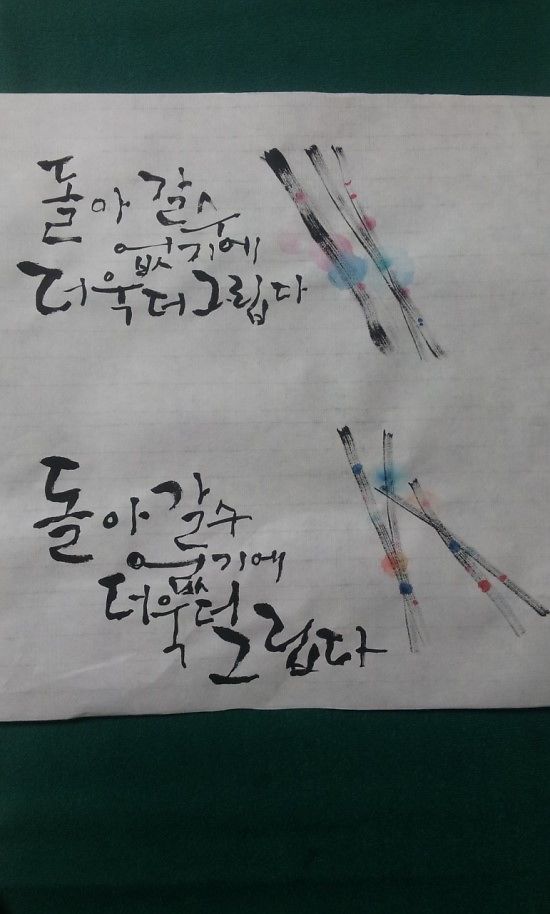 돌아 갈 수
없기에
더욱 더 그립다
돌아 갈 수
없기에
더욱 더
그립다